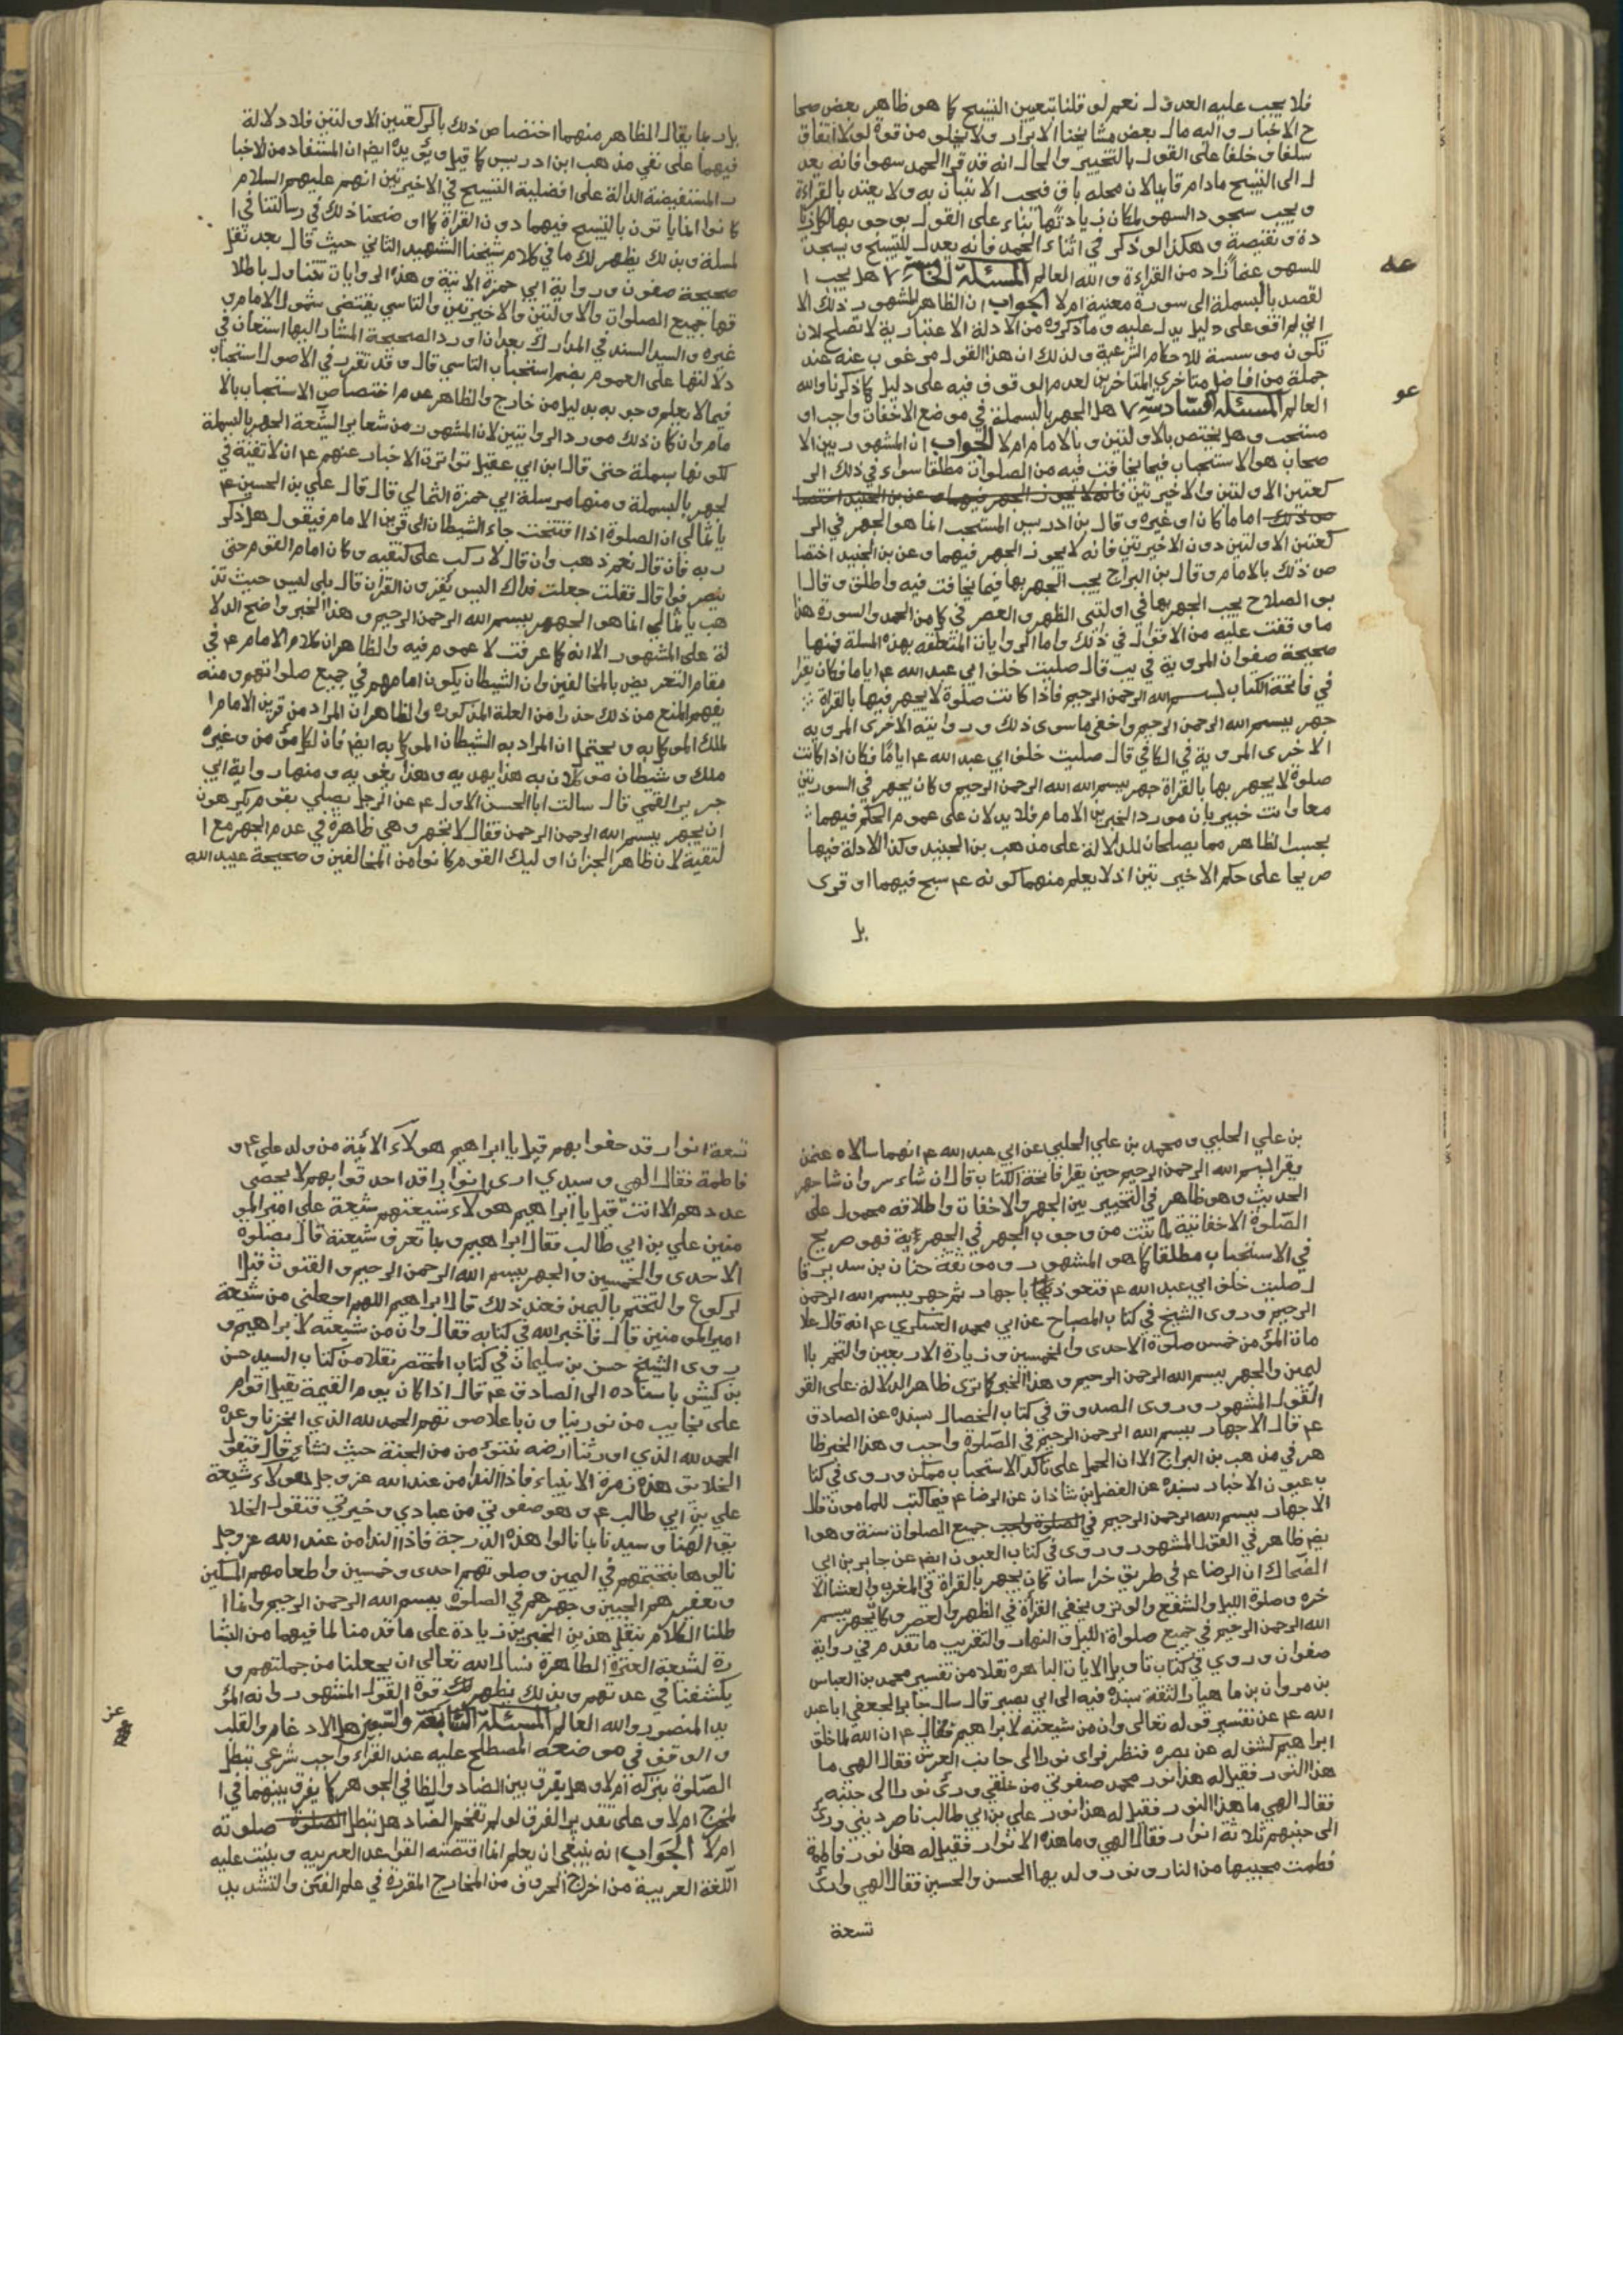 فلا يجب عليه العدول نعم لو قلنا بتعيين التسبيح كما هو ظاهر بعض صحا
ح الاخبار واليه مال بعض مشايخنا الابرار ولا يخلو من قوة لولا اتفاق
سلفا وخلفا على القول بالتخيير والحال انه قد قرا الحمد سهوا فانه يعد
ل الى التسبيح مادام قايما لان محله باق فيجب الاتيان به ولا يعتد بالقراءة
ويجب سجود السهو لمكان زيادتها بناء على القول بوجوبها لكل زيا
دة ونقيصة وهكذا لو ذكر في اثناء الحمد فانه يعدل للتسبيح ويسجد
للسهو عما زاد من القراءة والله العالم المسئلة الخامسة ٧ هل يجب ا
لقصد بالبسملة الى سورة معينة ام لا الجواب ان الظاهر المشهور ذلك الا
اني لم اقف على دليل يدل عليه وما ذكروه من الادلة الاعتبارية لا تصلح لان
تكون موسسة للاحكام الشرعية ولذلك ان هذا القول مرغوب عنه عند
جملة من افاضل متاخري المتاخرين لعدم الوقوف فيه على دليل كما ذكرنا والله
العالم المسئلة السادسة ٧ هل الجهر بالبسملة في موضع الاخفات واجب او
مستحب وهل يختص بالاولتين وبالامام ام لا الجواب ان المشهور بين الا
صحاب هو الاستحباب فيما يخافت فيه من الصلوات مطلقا سواء في ذلك الر
كعتين الاولتين والاخيرتين فانه لا يجوز الجهر فيهما وعن بن الجنيد اختصا
ص ذلك اماما كان او غيره وقال بن ادريس المستحب انما هو الجهر في الر
كعتين الاولتين دون الاخيرتين فانه لا يجوز الجهر فيهما وعن بن الجنيد اختصا
ص ذلك بالامام وقال بن البراج يجب الجهر بها فيما يخافت فيه واطلق وقال ا
بو الصلاح يجب الجهر بها في اولتي الظهر والعصر في كل من الحمد والسورة هذا
ما وقفت عليه من الاقوال في ذلك واما الروايات المتعلقه بهذه المسلة فمنها
صحيحة صفوان المروية في يب قال صليت خلف ابي عبد الله ع م اياما فكان يقرا
في فاتحة الكتاب بسم الله الرحمن الرحيم فاذا كانت صلوة لا يجهر فيها بالقراة
جهر ببسم الله الرحمن الرحيم واخفى ما سوى ذلك وروايته الاخرى المرويه
الاخرى المروية في الكافي قال صليت خلف ابي عبد الله ع م اياما فكان اذا كانت
صلوة لا يجهر بها بالقراة جهر ببسم الله الله الرحمن الرحيم وكان يجهر في السورتين
معا وانت خبير بان مورد الخبرين الامام فلا يدلان على عموم الحكم فيهما
بحسب الظاهر مما يصلحان للدلالة على مذهب بن الجنيد وكذا لا دلالة فيها
صريحا على حكم الاخيرتين اذ لا يعلم منهما كونه ع م سبح فيهما او قرى
بل
عه
عو
بل ربما يقال الظاهر منهما اختصاص ذلك بالركعتين الاولتين فلا دلالة
فيهما على نفي مذهب ابن ادريس كما قيل ويؤيده ايضا ان المستفاد من الاخبا
ر المستفيضة الدالة على افضلية التسبيح في الاخيرتين انهم عليهم السلام
كانوا انما ياتون بالتسبيح فيهما دون القراة كما اوضحنا ذلك في رسالتنا في ا
لمسلة وبذلك يظهر لك ما في كلام شيخنا الشهيد الثاني حيث قال بعد نقل
صحيحة صفون ورواية ابي حمزة الاتية وهذه الروايات تتناول باطلا
قها جميع الصلوات والاولتين والاخيرتين والتاسي يقتضي شمول الامام و
غيره والسيد السند في المدارك بعد ان اورد الصحيحة المشار اليها استعان في
دلالتها على العموم بضم استحباب التاسي قال وقد تقرر في الاصول استحباب
فيما لا يعلم وجوبه بدليل من خارج والظاهر عدم اختصاص الاستحباب بالا
مام وان كان ذلك مورد الروايتين لان المشهور من شعاير الشيعة الجهر بالبسملة
لكونها بسملة حتى قال ابن ابي عقيل تواترت الاخبار عنهم ع م ان لا تقية في
لجهر بالبسملة ومنها مرسلة ابي حمزة الثمالي قال قال علي بن الحسين ع م
يا ثمالي ان الصلوة اذا افتتحت جاء الشيطان الى قرين الامام فيقول هل ذكر
ربه فان قال نعم ذهب وان قال لا ركب على كتفيه وكان امام القوم حتى
ينصرفوا قال فقلت جعلت فداك اليس يقرون القران قال بلى ليس حيث تذ
هب يا ثمالي انما هو الجهر ببسم الله الرحمن الرحيم وهذا الخبر واضح الدلا
لة على المشهور الا انه كما عرفت لا عموم فيه والظاهر ان كلام الامام ع م في
مقام التعريض بالمخالفين وان الشيطان يكون امامهم في جميع صلواتهم ومنه
يفهم المنع من ذلك حذرا من العلة المذكوره والظاهر ان المراد من قرين الامام ا
لملك الموكل به ويحتمل ان المراد به الشيطان الموكل به ايضا فان لكل مؤمن وغيره
ملك وشيطان موكلان به هذا يهديه وهذا يغويه ومنها رواية ابي
جرير القمي قال سالت ابا الحسن الاول ع م عن الرجل يصلي بقوم يكرهون
ان يجهر ببسم الله الرحمن الرحمن فقال لا يجهر وهي ظاهرة في عدم الجهر مع ا
لتقية لان ظاهر الجزان اوليك القوم كانوا من المخالفين وصحيحة عبيد الله
بن علي الحلبي ومحمد بن علي الحلبي عن ابي عبد الله ع م انهما سالاه عمن
يقرا بسم الله الرحمن الرحيم حين يقرا فاتحة الكتاب قال ان شاء سر وان شا جهر
الحديث وهو ظاهر في التخيير بين الجهر والاخفات واطلاقه محمول على
الصلوة الاخفاتية لما ثبت من وجوب الجهر في الجهرية فهو صريح
في الاستحباب مطلقا كما هو المشهور وموثقة حنان بن سدير قا
ل صليت خلف ابي عبد الله ع م فتعوذ باجهار ثم جهر ببسم الله الرحمن
الرحيم وروى الشيخ في كتاب المصباح عن ابي محمد العسكري ع م انه قال علا
مات المؤمن خمس صلوة الاحدى والخمسين وزيارة الاربعين والتختم بال
ليمين والجهر ببسم الله الرحمن الرحيم وهذا الخبر كما ترى ظاهر الدلالة على القو
القول المشهور وروى الصدوق في كتاب الخصال بسنده عن الصادق
ع م قال الاجهار ببسم الله الرحمن الرحيم في الصلوة واجب وهذا الخبر ظا
هر في مذهب بن البراج الا ان الحمل على تاكد الاستحباب ممكن وروى في كتا
ب عيون الاخبار بسنده عن الفضل بن شاذان عن الرضا ع م فيما كتب للمامون قال
الاجهار ببسم الله الرحمن الرحيم في الصلوة واجب جميع الصلوات سنة وهو ا
يضا ظاهر في القول المشهور وروى في كتاب العيون ايضا عن جابر بن ابي
الضحاك ان الرضا ع م في طريق خراسان كان يجهر بالقراة في المغرب والعشا الا
خره وصلوة الليل والشفع والوتر ويخفي القراة في الظهر والعصر وكان يجهر ببسم
الله الرحمن الرحيم في جميع صلواة الليل والنهار والتقريب ما تقدم في رواية
صفوان وروي في كتاب تاويل الايات الباهرة نقلا من تفسير محمد بن العباس
بن مروان بن ماهيار الثقة بسنده فيه الى ابي بصير قال سال جابر الجعفي ابا عبد
الله ع م عن تفسير قوله تعالى وان من شيعته لابراهيم فقال ع م ان الله لما خلق
ابراهيم كشف له عن بصره فنظر فراى نورا الى جانب العرش فقال الهي ما
هذا النور فقيل له هذا نور محمد صفوتي من خلقي ورئ نورا الى جنبه
فقال الهي ما هذا النور فقيل له هذا نور علي بن ابي طالب ناصر ديني ورئ
الى جنبهم ثلاثة انوار فقال الهي وما هذه الانوار فقيل له هذا نور فاطمة
فطمت محبيها من النار ونور ولديها الحسن والحسين فقال الهي وارئ
تسعة
تسعة انوار قد حفوا بهم قيل يا ابراهيم هولاء الائمة من ولد علي ع م و
فاطمة فقال الهي وسيدي ارى انوارا قد احدقوا بهم لا يحصى
عددهم الا انت قيل يا ابراهيم هولاء شيعتهم شيعة علي امير المو
منين علي بن ابي طالب فقال ابراهيم وبما تعرف شيعته قال بصلوة
الاحدى والخمسين والجهر ببسم الله الرحمن الرحيم والقنوت قبل ا
لركوع والتختم باليمين فعند ذلك قال ابراهيم اللهم اجعلني من شيعة
امير المومنين قال فاخبر الله في كتابه فقال وان من شيعته لابراهيم و
روى الشيخ حسن بن سليمان في كتاب المختصر نقلا من كتاب السيد حسن
بن كبش باسناده الى الصادق ع م قال اذا كان يوم القيمة يقبل اقوام
على نجايب من نور ينادون باعلا صوتهم الحمد لله الذي انجزنا وعده
الحمد لله الذي اورثنا ارضه نتبوء من من الجنة حيث نشاء قال فتقول
الخلايق هذه زمرة الانبياء فاذا النداء من عند الله عز وجل هولاء شيعة
علي بن ابي طالب ع م وهو صفوتي من عبادي وخيرتي فتقول الخلا
يق الهنا وسيدنا بما نالوا هذه الدرجة فاذا الندا من عند الله عز وجل
نالوها بتختمهم في اليمين وصلوتهم احدى وخمسين واطعامهم المسكين
وتعفيرهم الجبين وجهرهم في الصلوة ببسم الله الرحمن الرحيم وانما ا
طلنا الكلام بنقل هذين الخبرين زيادة على ما قدمنا لما فيهما من البشا
رة لشيعة العترة الطاهرة نسال الله تعالى ان يجعلنا من جملتهم و
يكشفنا في عدتهم وبذلك يظهر لك قوة القول المشهور وانه المؤ
يد المنصور والله العالم المسئلة السابعة والسبعين هل الادغام والقلب
والوقف في موضعه المصطلح عليه عند القراء واجب شرعي تبطل
الصلوة بتركه ام لا وهل يفرق بين الضاد والظا في الجوهر كما يفرق بينهما في ا
لمخرج ام لا وعلى تقدير الفرق لو لم تفخم الضاد هل تبطل الصلوة صلوته
ام لا الجواب انه ينبغي ان يعلم انما اقتضته القواعد العربيه وبنيت عليه
اللغة العربية من اخراج الحروف من المخارج المقررة في علم الفن والتشديد
عز